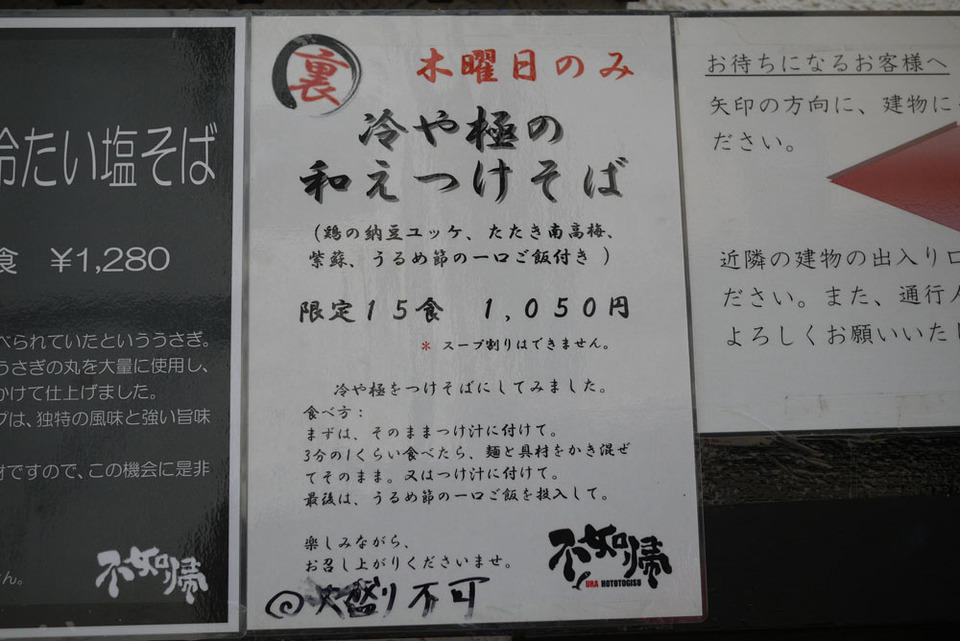 冷たい塩そば
食 ¥1,280
べられていたといううさぎ。
うさぎの丸を大量に使用し、
かけて仕上げました。
プは、独特の風味と強い旨味
材ですので、この機会に是非
せん。
不如帰
裏
木曜日のみ
冷や極の
和えつけそば
（鶏の納豆ユッケ、たたき南高梅、
紫蘇、うるめ節の一口ご飯付き ）
限定１５食 １,０５０円
＊ スープ割りはできません。
冷や極をつけそばにしてみました。
食べ方：
まずは、そのままつけ汁に付けて。
3分の1くらい食べたら、麺と具材をかき混ぜ
てそのまま。又はつけ汁に付けて。
最後は、うるめ節の一口ご飯を投入して。
楽しみながら、
お召し上がりくださいませ。
◎大盛り不可
不如帰
URA HOTOTOGISU
お待ちになるお客様へ
矢印の方向に、建物に
ださい。
近隣の建物の出入り口
ださい。また、通行人
よろしくお願いいた